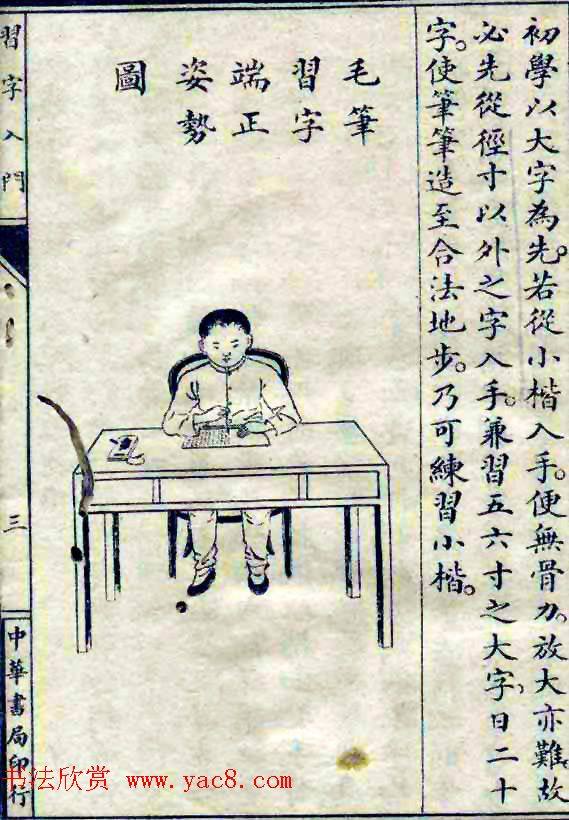 初學以大字為先。若從小楷入手。便無骨力。放大亦難。故
必先從徑寸以外之字入手。兼習五六寸之大字。日二十
字。使筆筆造至合法地步。乃可練習小楷。
毛筆
習字
端正
姿勢
圖
習字入門
三
中華書局印行
书法欣赏 www.yac8.com